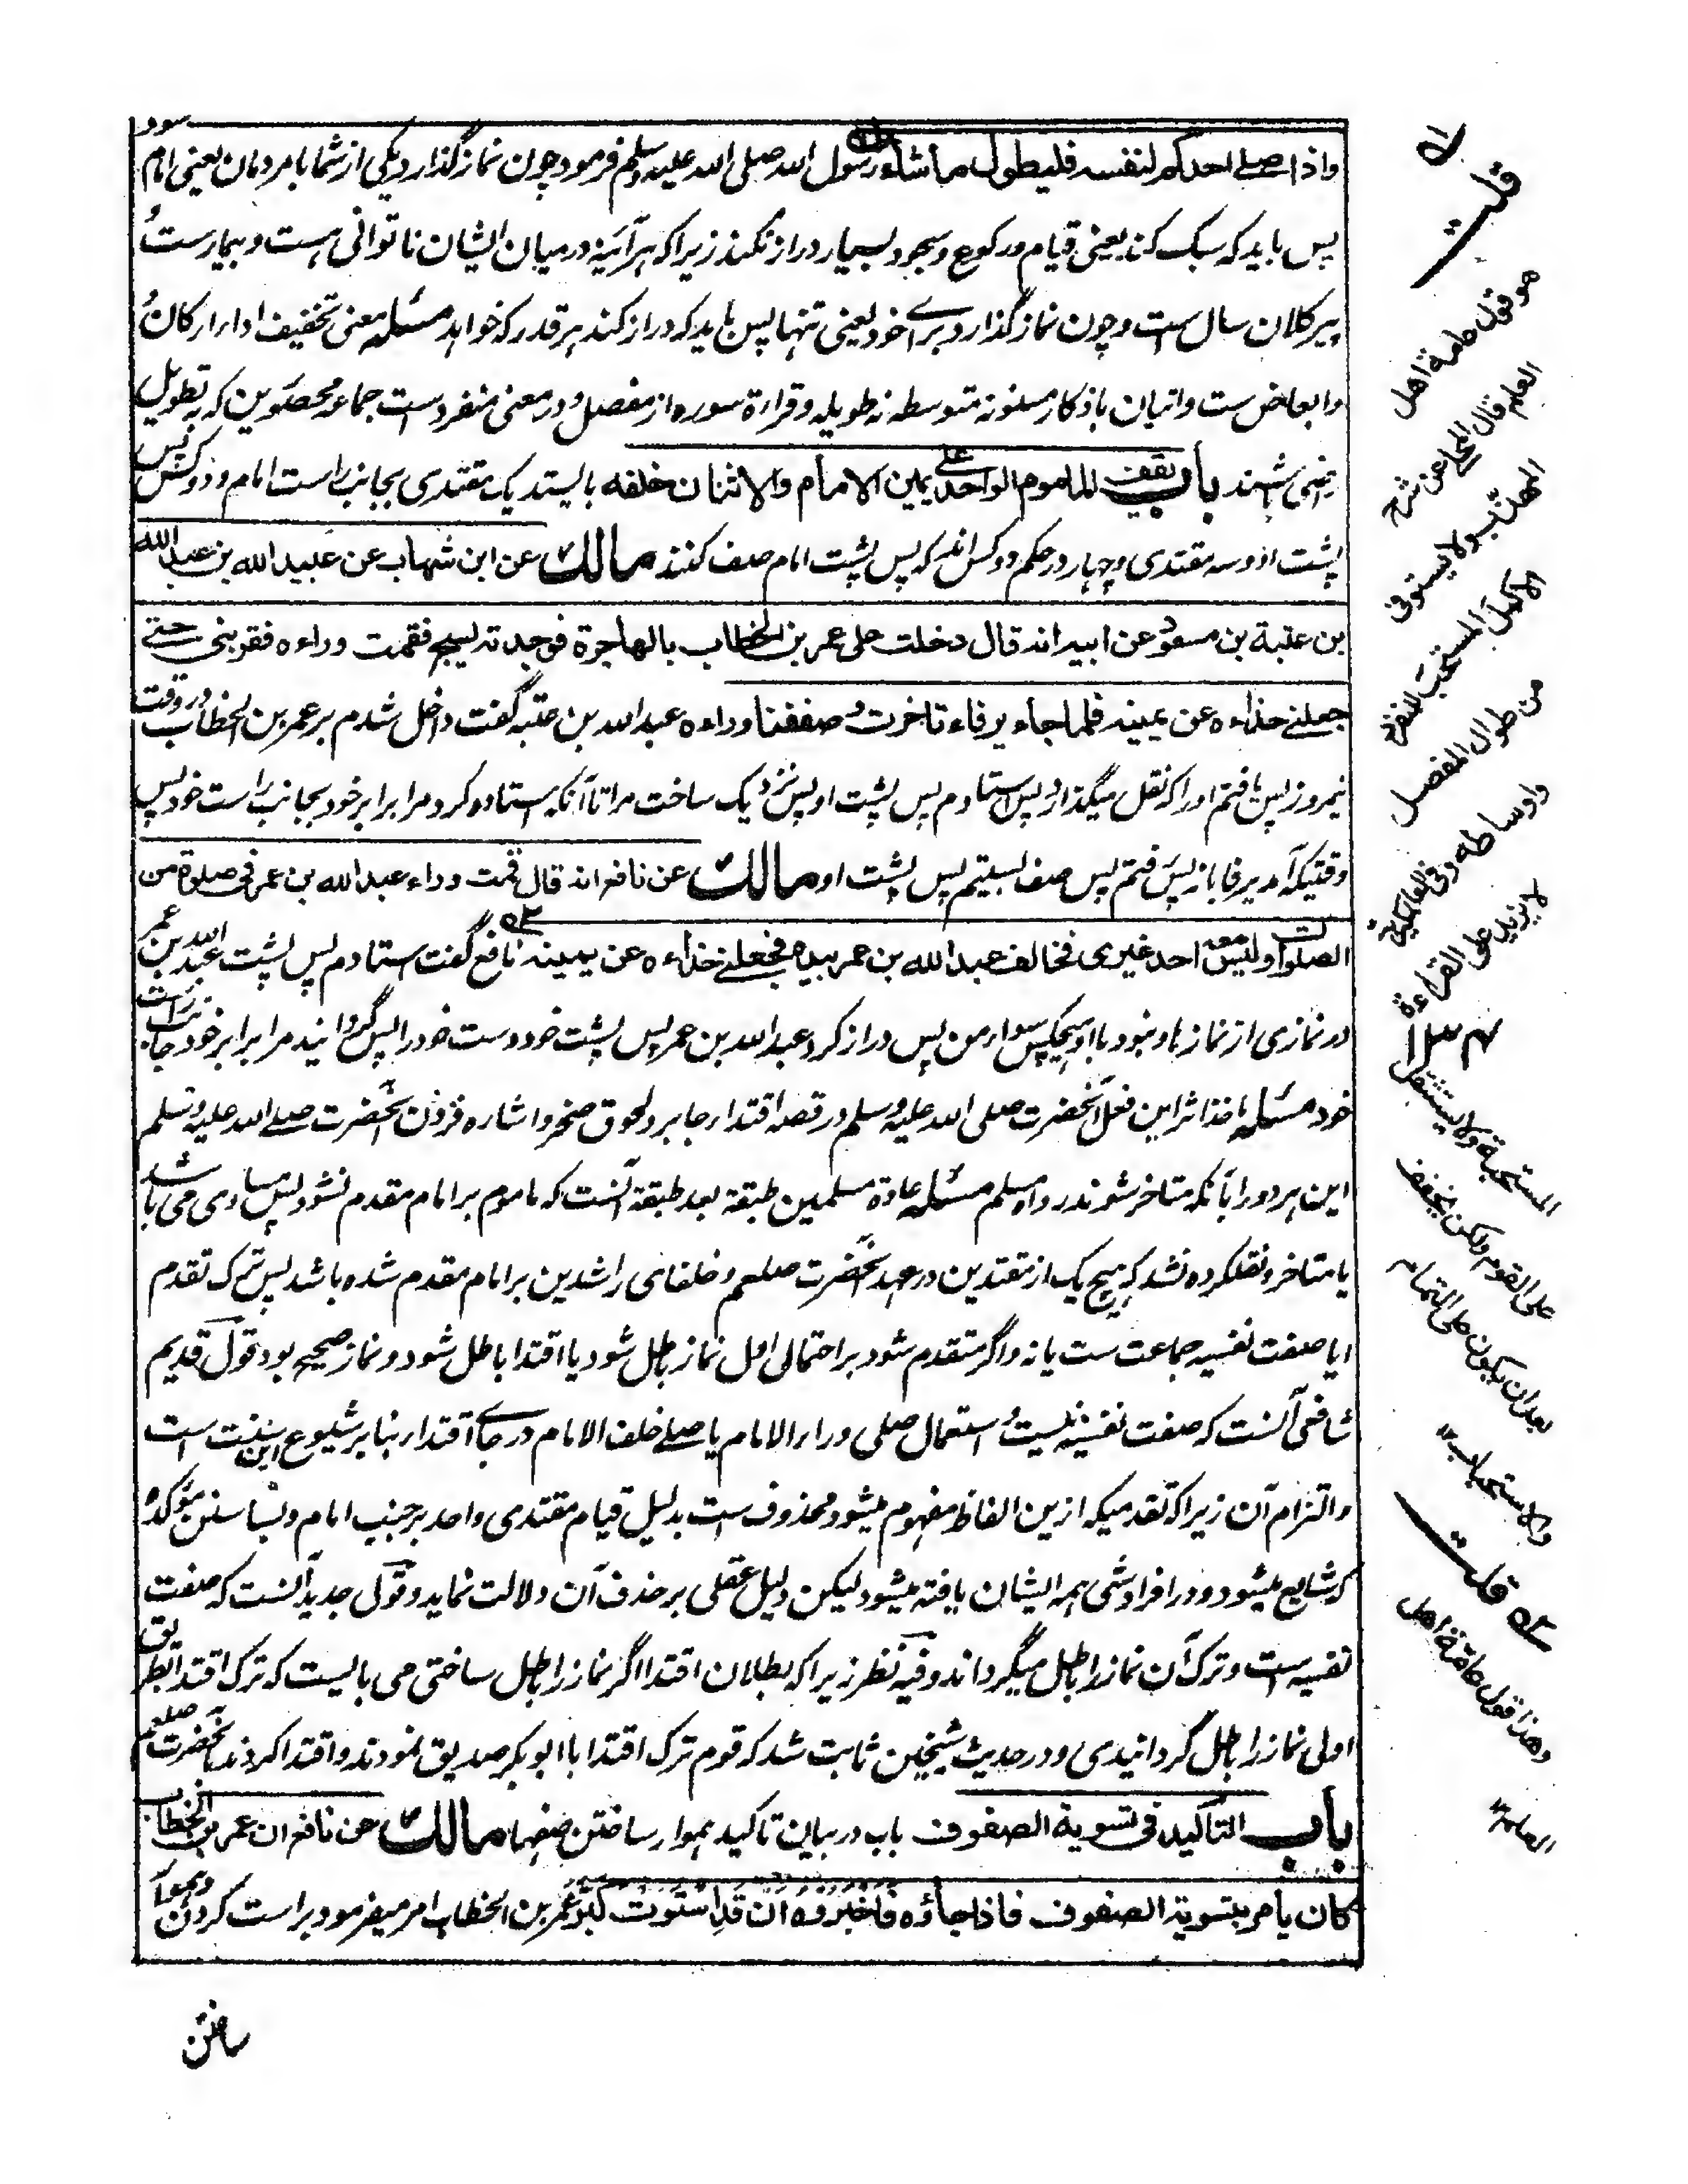 واذا صلے احدکم لنفسه فلیطول ما شاء رسول الله صلی الله علیه وسلم فرمود چون نماز گذارد یکی از شما با مردمان یعنی امام سود
پس باید که سبک کند یعنی قیام و رکوع و سجود بسیار دراز نکند زیرا که هر آئینه درمیان ایشان ناتوانی هست و بیمارست و
پیر کلان سال ست و چون نماز گذارد برای خود یعنی تنها پس باید که دراز کند هر قدر که خواهد مسئله معنی تخفیف ادا ارکان
وابعاض ست واتیان باذکار مسنونه متوسطه نه طویله و قراءة سوره از مفصل و در معنی منفرد ست جماعه محصورین که به تطویل
راضی باشند باب یقف الماموم الواحد علی یمین الامام والاثنان خلفه بایستد یک مقتدی بجانب راست امام و دو کس پس
پشت او و سه مقتدی و چهار در حکم دو کس اند که پس پشت امام صف کنند مالک عن ابن شهاب عن عبید الله بن عبد الله
بن عتبة بن مسعود عن ابیه انه قال دخلت علی عمر بن الخطاب بالهاجرة فوجدته یسبح فقمت وراءه فقربنی حتے
جعلنے حذاءه عن یمینه فلما جاء یرفاء تاخرت و صففنا وراءه عبد الله بن عتبه گفت داخل شدم بر عمر بن الخطاب در وقت
نیمروز پس یافتم او را که نفل میگذارد پس استادم پس پشت او پس نزدیک ساخت مرا تا آنکه استاده کرد مرا برابر خود بجانب راست خود پس
وقتیکه آمد یرفا باز پس رفتم پس صف بستیم پس پشت او مالک عن نافع انه قال قمت وراء عبد الله بن عمر فی صلوة من
الصلوات ولیس معه احد غیری فخالف عبد الله بن عمر بیده فجعلنے حذاءه عن یمینه نافع گفت استادم پس پشت عبد الله بن عمر
در نمازی از نمازها و نبود با او هیچکس سوار من پس دراز کرد عبد الله بن عمر پس پشت خود دست خود را پس گردانید مرا برابر خود جانب راست
خود مسئله ماخذ اثر این فعل آنحضرت صلی الله علیه وسلم در قصه اقتدار جابر و لحوق صخر و اشاره فرمودن آنحضرت صلے الله علیه وسلم
این هر دو را بآنکه متاخر شوند رواه مسلم مسئله عادة مسلمین طبقة بعد طبقة آنست که ماموم بر امام مقدم نشود پس مساوی می باشد
یا متاخر و نقل کرده نشد که هیچ یک از مقتدین در عهد آنحضرت صلعم و خلفای راشدین بر امام مقدم شده باشد پس ترک تقدم
ایا صفت نفسیه جماعت ست یا نه و اگر متقدم شود بر احتمال اول نماز باطل شود یا اقتدا باطل شود و نماز صحیح بود قول قدیم
شافعی آنست که صفت نفسیه نیست و استعمال صلی وراء الامام یا صلے خلف الامام در جاے اقتدار بنا بر شیوع این سنت است
والتزام آن زیرا که تقدمیکه ازین الفاظ مفهوم میشود محذوف ست بدلیل قیام مقتدی واحد بر جنب امام و بسا سنن مؤکده
که شایع میشود و در افراد شی همه ایشان یافته میشود لیکن دلیل عقلی بر حذف آن دلالت نماید و قول جدید آنست که صفت
نفسیه ست و ترک آن نماز را باطل میگرداند وفیه نظر زیرا که بطلان اقتدا اگر نماز را باطل ساختی می بایست که ترک اقتدا بطریق
اولی نماز را باطل گردانیدی و در حدیث شیخین ثابت شد که قوم ترک اقتدا با ابوبکر صدیق نمودند و اقتدا کردند بآنحضرت صلعم
باب التاکید فی تسویة الصفوف باب در بیان تاکید هموار ساختن صفها مالک عن نافع ان عمر بن الخطاب
کان یأمر بتسویة الصفوف فاذا جاؤه فاخبروه ان قد استوت کبر عمر بن الخطاب امر میفرمود براست کردن و هموار
ساختن
قلت
هو قول عامة اهل
العلم قال المحلی عن شرح
المهذب ولا یستوفی
الاکمل المستحب للمنفرد
من طوال المفصل
واوساطه وفی العالمگیریة
لا یزید علی القراءة
المستحبة ولا یستثقل
علی القوم ولکن یخفف
بعد ان یکون علی التمام
والاستحباب
قلت
وهذا قول عامة اهل
العلم